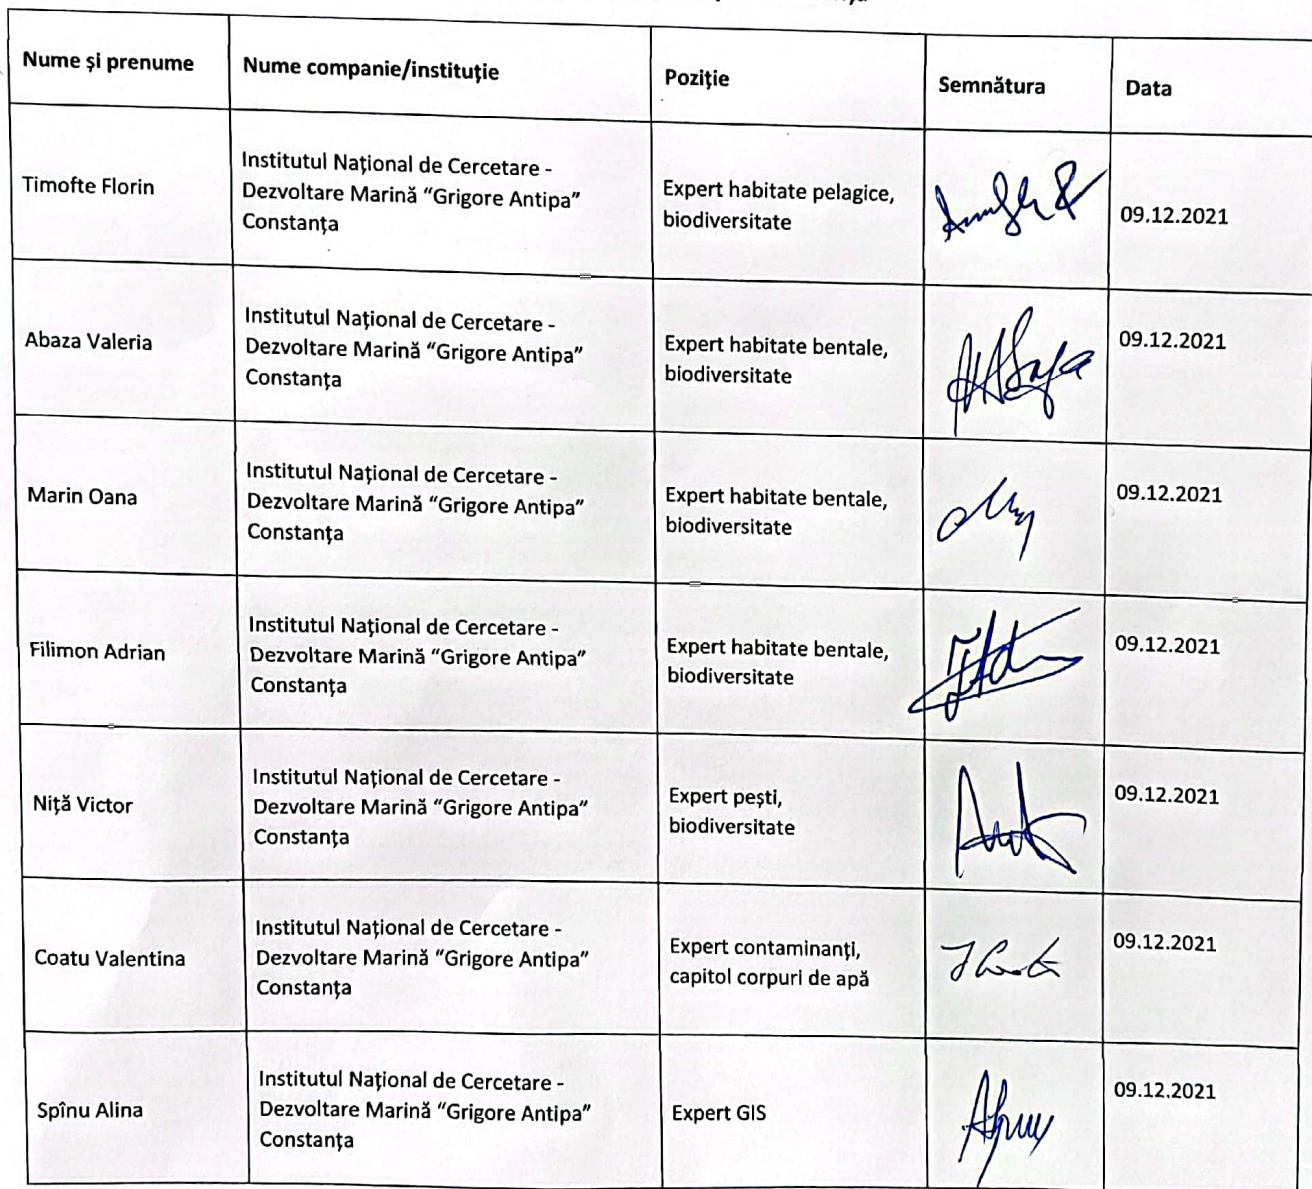 Nume și prenume
Nume companie/instituție
Poziție
Semnătura
Data
Timofte Florin
Institutul Național de Cercetare -
Dezvoltare Marină “Grigore Antipa”
Constanța
Expert habitate pelagice,
biodiversitate
09.12.2021
Abaza Valeria
Institutul Național de Cercetare -
Dezvoltare Marină “Grigore Antipa”
Constanța
Expert habitate bentale,
biodiversitate
09.12.2021
Marin Oana
Institutul Național de Cercetare -
Dezvoltare Marină “Grigore Antipa”
Constanța
Expert habitate bentale,
biodiversitate
09.12.2021
Filimon Adrian
Institutul Național de Cercetare -
Dezvoltare Marină “Grigore Antipa”
Constanța
Expert habitate bentale,
biodiversitate
09.12.2021
Niță Victor
Institutul Național de Cercetare -
Dezvoltare Marină “Grigore Antipa”
Constanța
Expert pești,
biodiversitate
09.12.2021
Coatu Valentina
Institutul Național de Cercetare -
Dezvoltare Marină “Grigore Antipa”
Constanța
Expert contaminanți,
capitol corpuri de apă
09.12.2021
Spînu Alina
Institutul Național de Cercetare -
Dezvoltare Marină “Grigore Antipa”
Constanța
Expert GIS
09.12.2021